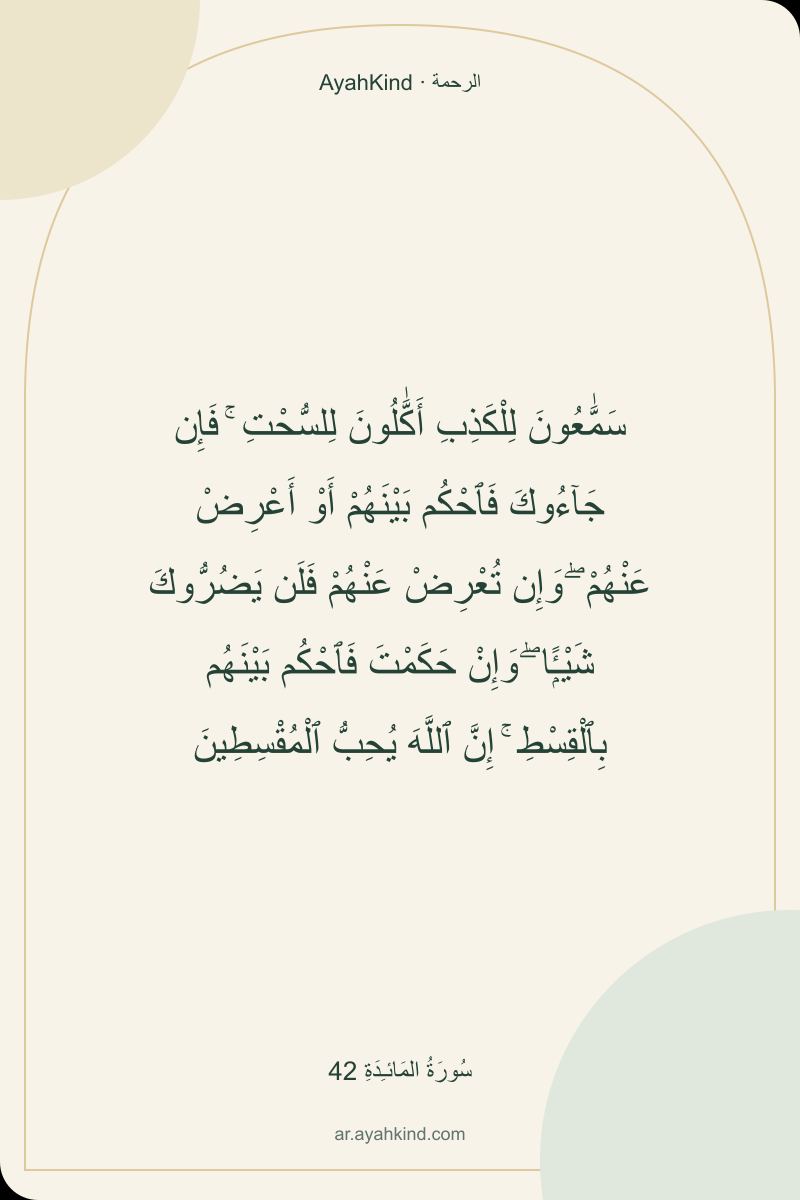 AyahKind · الرحمة
سَمَّٰعُونَ لِلْكَذِبِ أَكَّٰلُونَ لِلسُّحْتِ ۚ فَإِن
جَآءُوكَ فَٱحْكُم بَيْنَهُمْ أَوْ أَعْرِضْ
عَنْهُمْ ۖ وَإِن تُعْرِضْ عَنْهُمْ فَلَن يَضُرُّوكَ
شَيْـًٔا ۖ وَإِنْ حَكَمْتَ فَٱحْكُم بَيْنَهُم
بِٱلْقِسْطِ ۚ إِنَّ ٱللَّهَ يُحِبُّ ٱلْمُقْسِطِينَ
سُورَةُ المَائـِدَةِ 42
ar.ayahkind.com